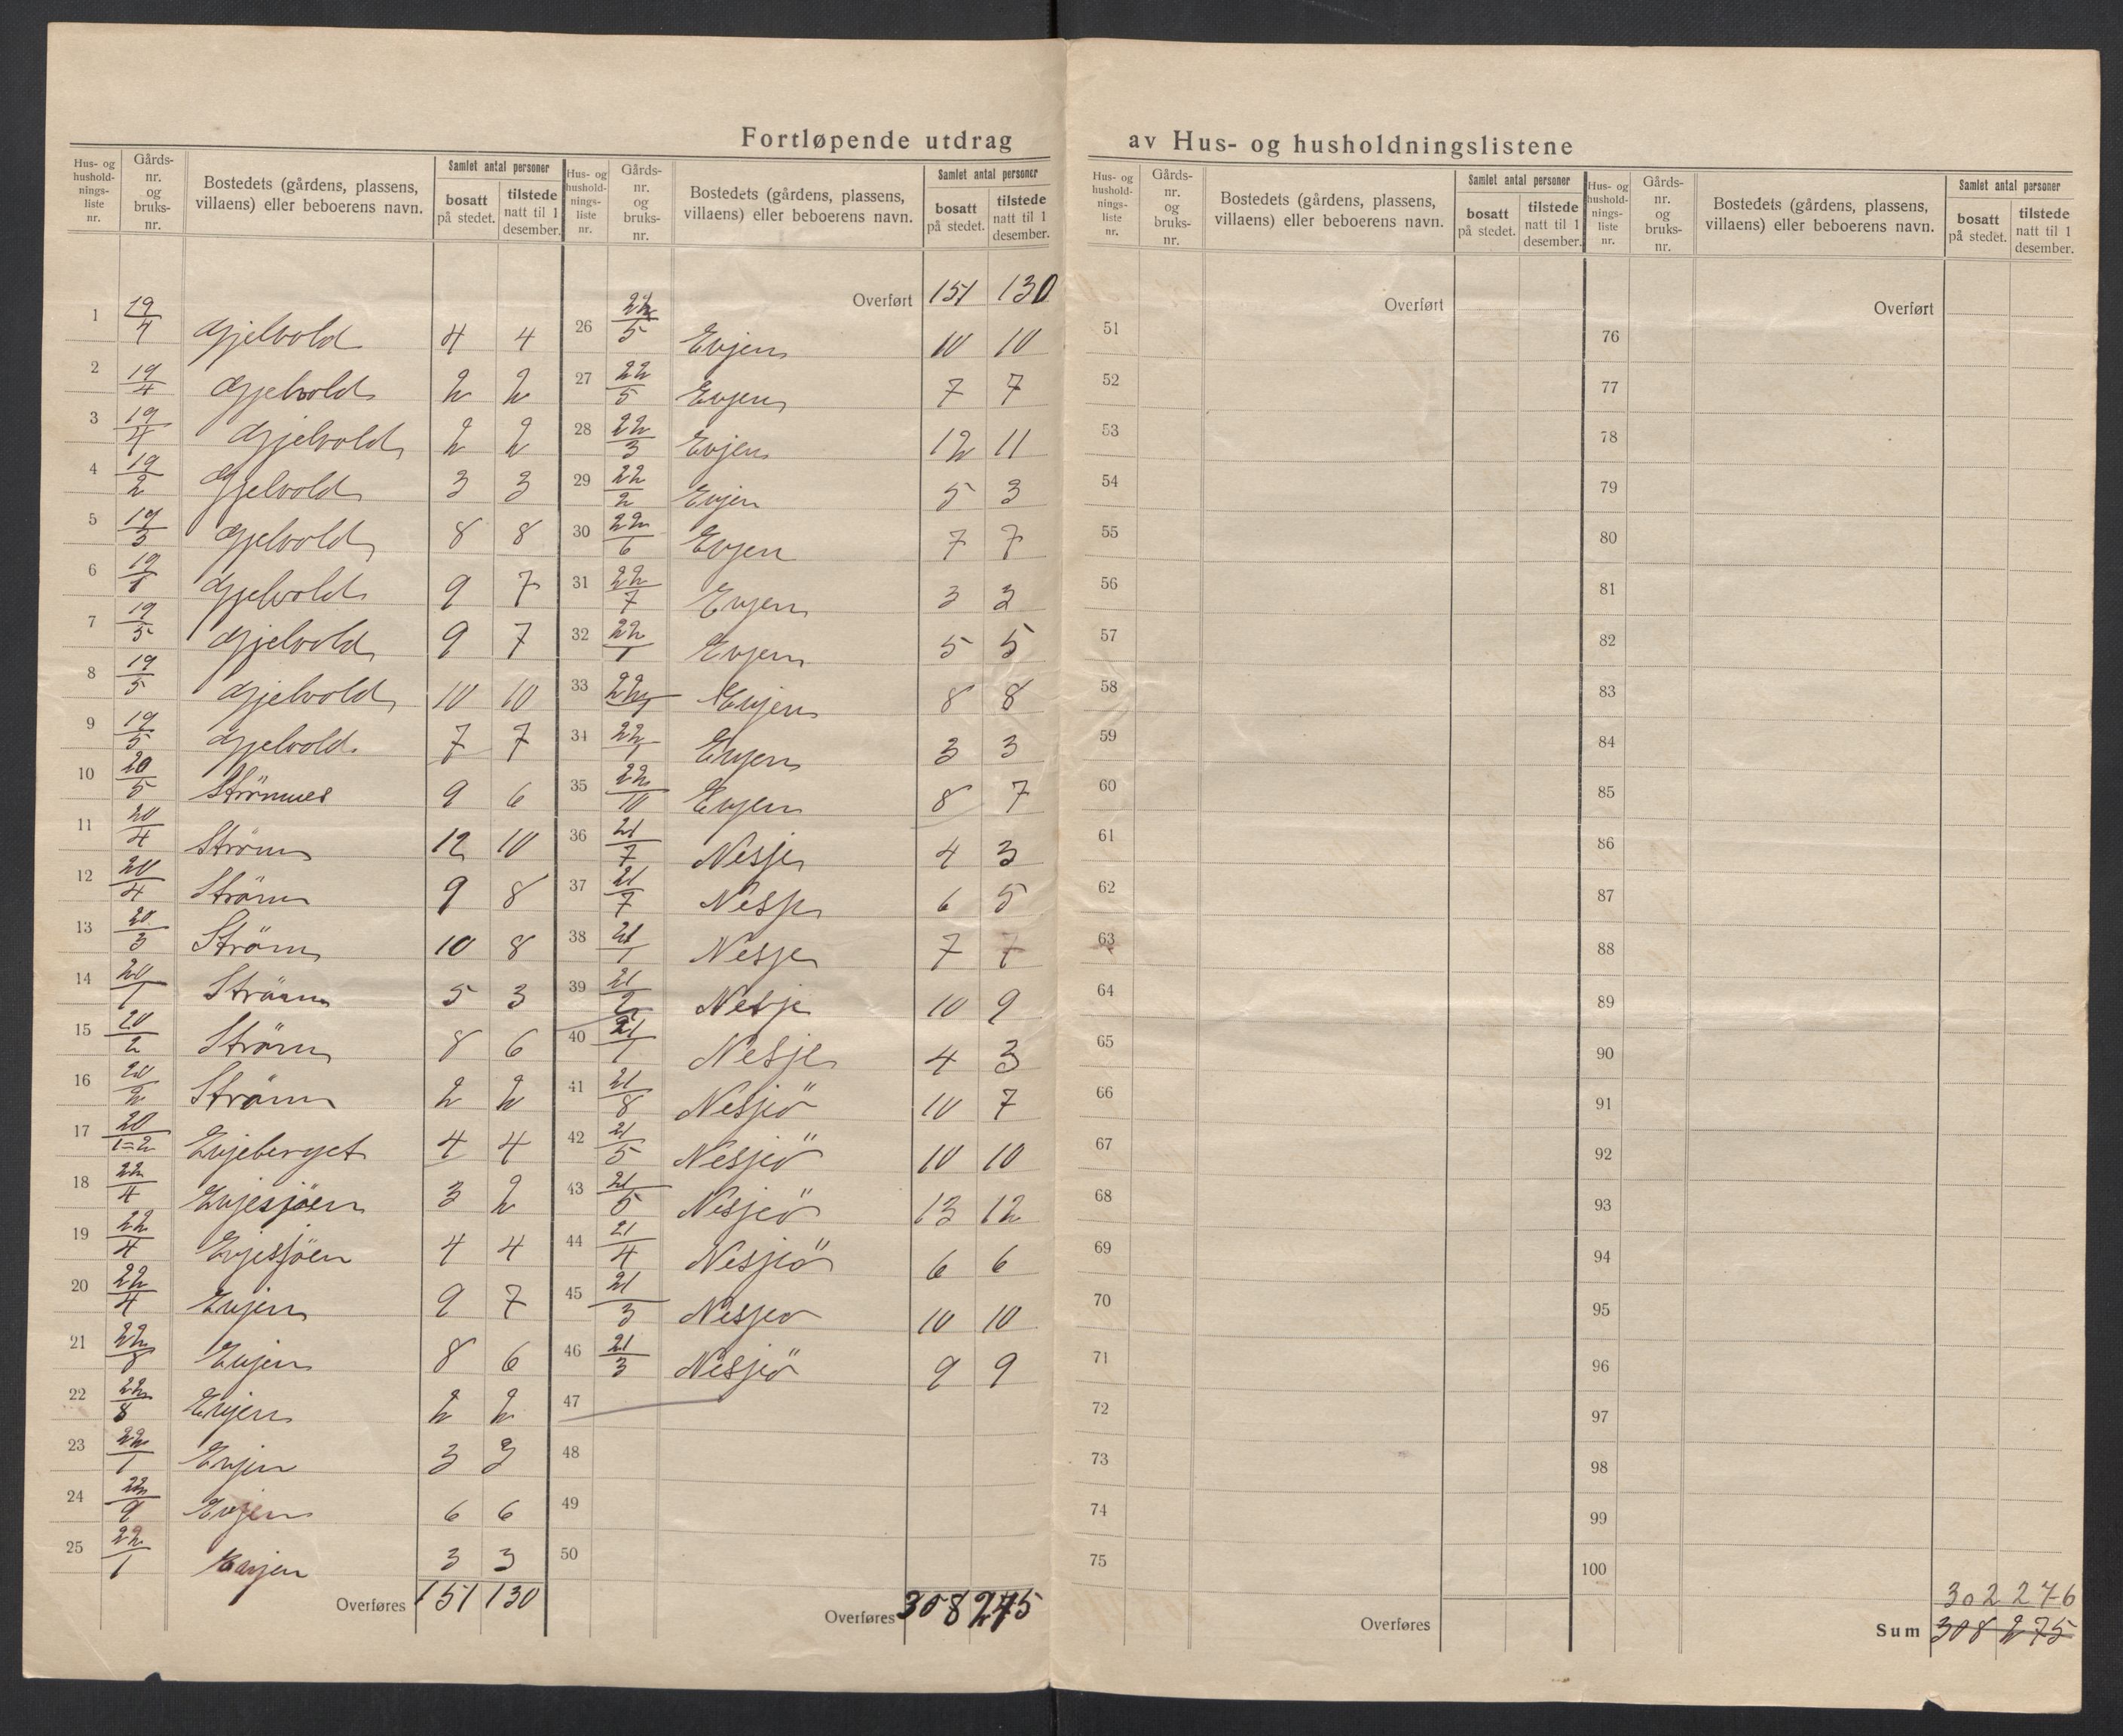 Fortløpende utdrag av Hus- og husholdningslistene
Hus- og husholdnings-liste nr. Gårds-nr. og bruks-nr. Bostedets (gårdens, plassens, villaens) eller beboerens navn. Samlet antal personer bosatt på stedet. tilstede natt til 1 desember.
1 19/4 Gjelvold 4 4
2 19/4 Gjelvold 2 2
3 19/4 Gjelvold 2 2
4 19/2 Gjelvold 3 3
5 19/3 Gjelvold 8 8
6 19/1 Gjelvold 9 7
7 19/5 Gjelvold 9 7
8 19/5 Gjelvold 10 10
9 19/5 Gjelvold 7 7
10 20/5 Strömnes 9 6
11 20/4 Ström 12 10
12 20/4 Ström 9 8
13 20/3 Ström 10 8
14 20/1 Ström 5 3
15 20/2 Ström 8 6
16 20/2 Ström 2 2
17 20/1=2 Evjeberget 4 4
18 22/4 Evjesjöen 3 2
19 22/4 Evjesjöen 4 4
20 22/4 Evjen 9 7
21 22/8 Evjen 8 6
22 22/8 Evjen 2 2
23 22/1 Evjen 3 3
24 22/9 Evjen 6 6
25 22/1 Evjen 3 3
Overføres 151 130
Hus- og husholdnings-liste nr. Gårds-nr. og bruks-nr. Bostedets (gårdens, plassens, villaens) eller beboerens navn. Samlet antal personer bosatt på stedet. tilstede natt til 1 desember.
Overført 151 130
26 22/5 Evjen 10 10
27 22/5 Evjen 7 7
28 22/3 Evjen 12 11
29 22/2 Evjen 5 3
30 22/6 Evjen 7 7
31 22/7 Evjen 3 3
32 22/1 Evjen 5 5
33 22/1 Evjen 8 8
34 22/1 Evjen 3 3
35 22/10 Evjen 8 7
36 21/7 Nesje 4 3
37 21/7 Nesje 6 5
38 21/1 Nesje 7 7
39 21/2 Nesje 10 9
40 21/1 Nesje 4 3
41 21/8 Nesjeö 10 7
42 21/5 Nesjeö 10 10
43 21/5 Nesjeö 13 12
44 21/4 Nesjeö 6 6
45 21/3 Nesjeo 10 10
46 21/3 Nesjeö 9 9
47
48
49
50
Overføres 308 275
Hus- og husholdnings-liste nr. Gårds-nr. og bruks-nr. Bostedets (gårdens, plassens, villaens) eller beboerens navn. Samlet antal personer bosatt på stedet. tilstede natt til 1 desember.
Overført
51
52
53
54
55
56
57
58
59
60
61
62
63
64
65
66
67
68
69
70
71
72
73
74
75
Overføres
Hus- og husholdnings-liste nr. Gårds-nr. og bruks-nr. Bostedets (gårdens, plassens, villaens) eller beboerens navn. Samlet antal personer bosatt på stedet. tilstede natt til 1 desember.
Overført
76
77
78
79
80
81
82
83
84
85
86
87
88
89
90
91
92
93
94
95
96
97
98
99
100
302 276
Sum 308 275